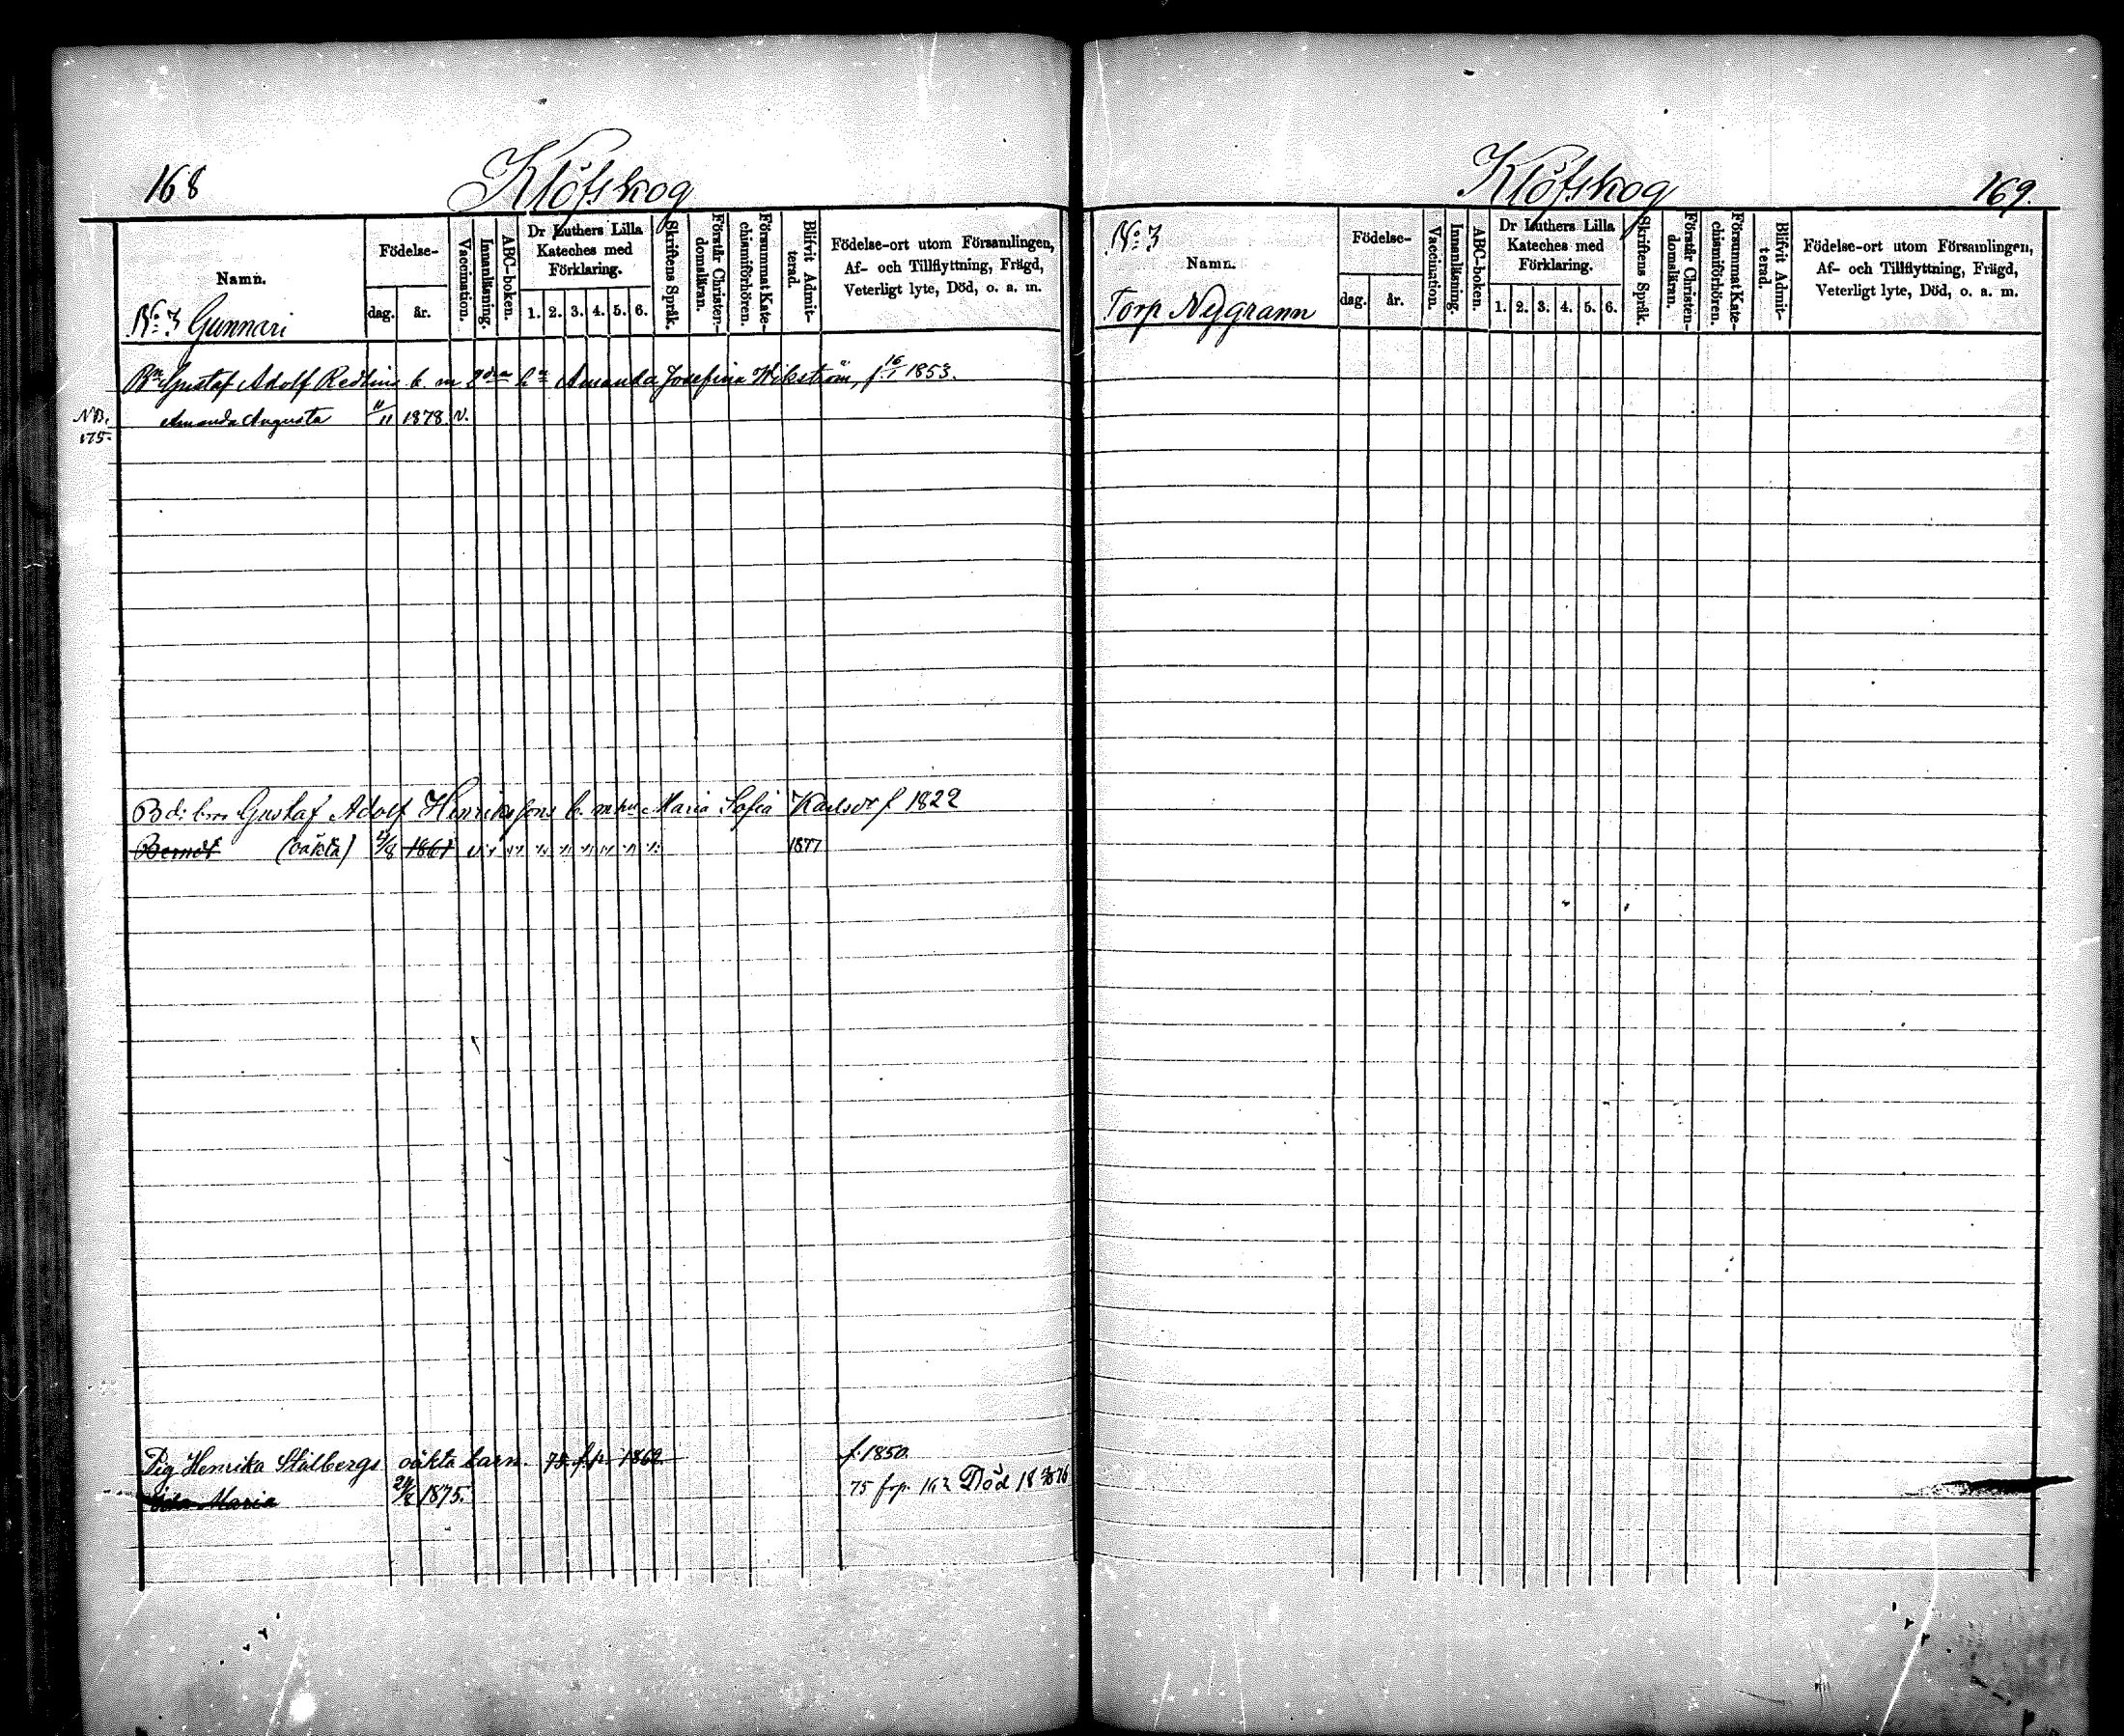 168
Klöfskog
Namn.
Födelse-
dag.
år.
Vaccination.
Innanläsning.
ABC-boken.
Dr Luthers Lilla
Kateches med
Förklaring.
1. 2. 3. 4. 5. 6.
Skriftens Språk.
Förstår Christen-
domsläran.
Försummat Kate-
chismiförhören.
Blifvit Admit-
terad.
Födelse-ort utom Församlingen,
Af- och Tillflyttning, Frägd,
Veterligt lyte, Död, o. a. m.
No: 3 Gunnari
Bn Gustaf Adolf Redlins b. m Amanda Josefina Wikström, f 16/1 1853.
NB. 175. Amanda Augusta 11/11 1878. v.
Bd: bror Gustaf Adolf Henrikssons b. m hu Maria Sofia Karlsdr f 1822
Berndt (oäkta) 4/8 1861 1877
Pig Henrika Stålbergs oäkta barn. 75. f.p. 162. f. 1850.
Ida Maria 24/6 1875. 75 frp. 162 Död 18 76
Klöfskog
169.
No: 3
Namn.
Torp Nygrann
Födelse-
dag.
år.
Vaccination.
Innanläsning.
ABC-boken.
Dr Luthers Lilla
Kateches med
Förklaring.
1. 2. 3. 4. 5. 6.
Skriftens Språk.
Förstår Christen-
domsläran.
Försummat Kate-
chismiförhören.
Blifvit Admit-
terad.
Födelse-ort utom Församlingen,
Af- och Tillflyttning, Frägd,
Veterligt lyte, Död, o. a. m.